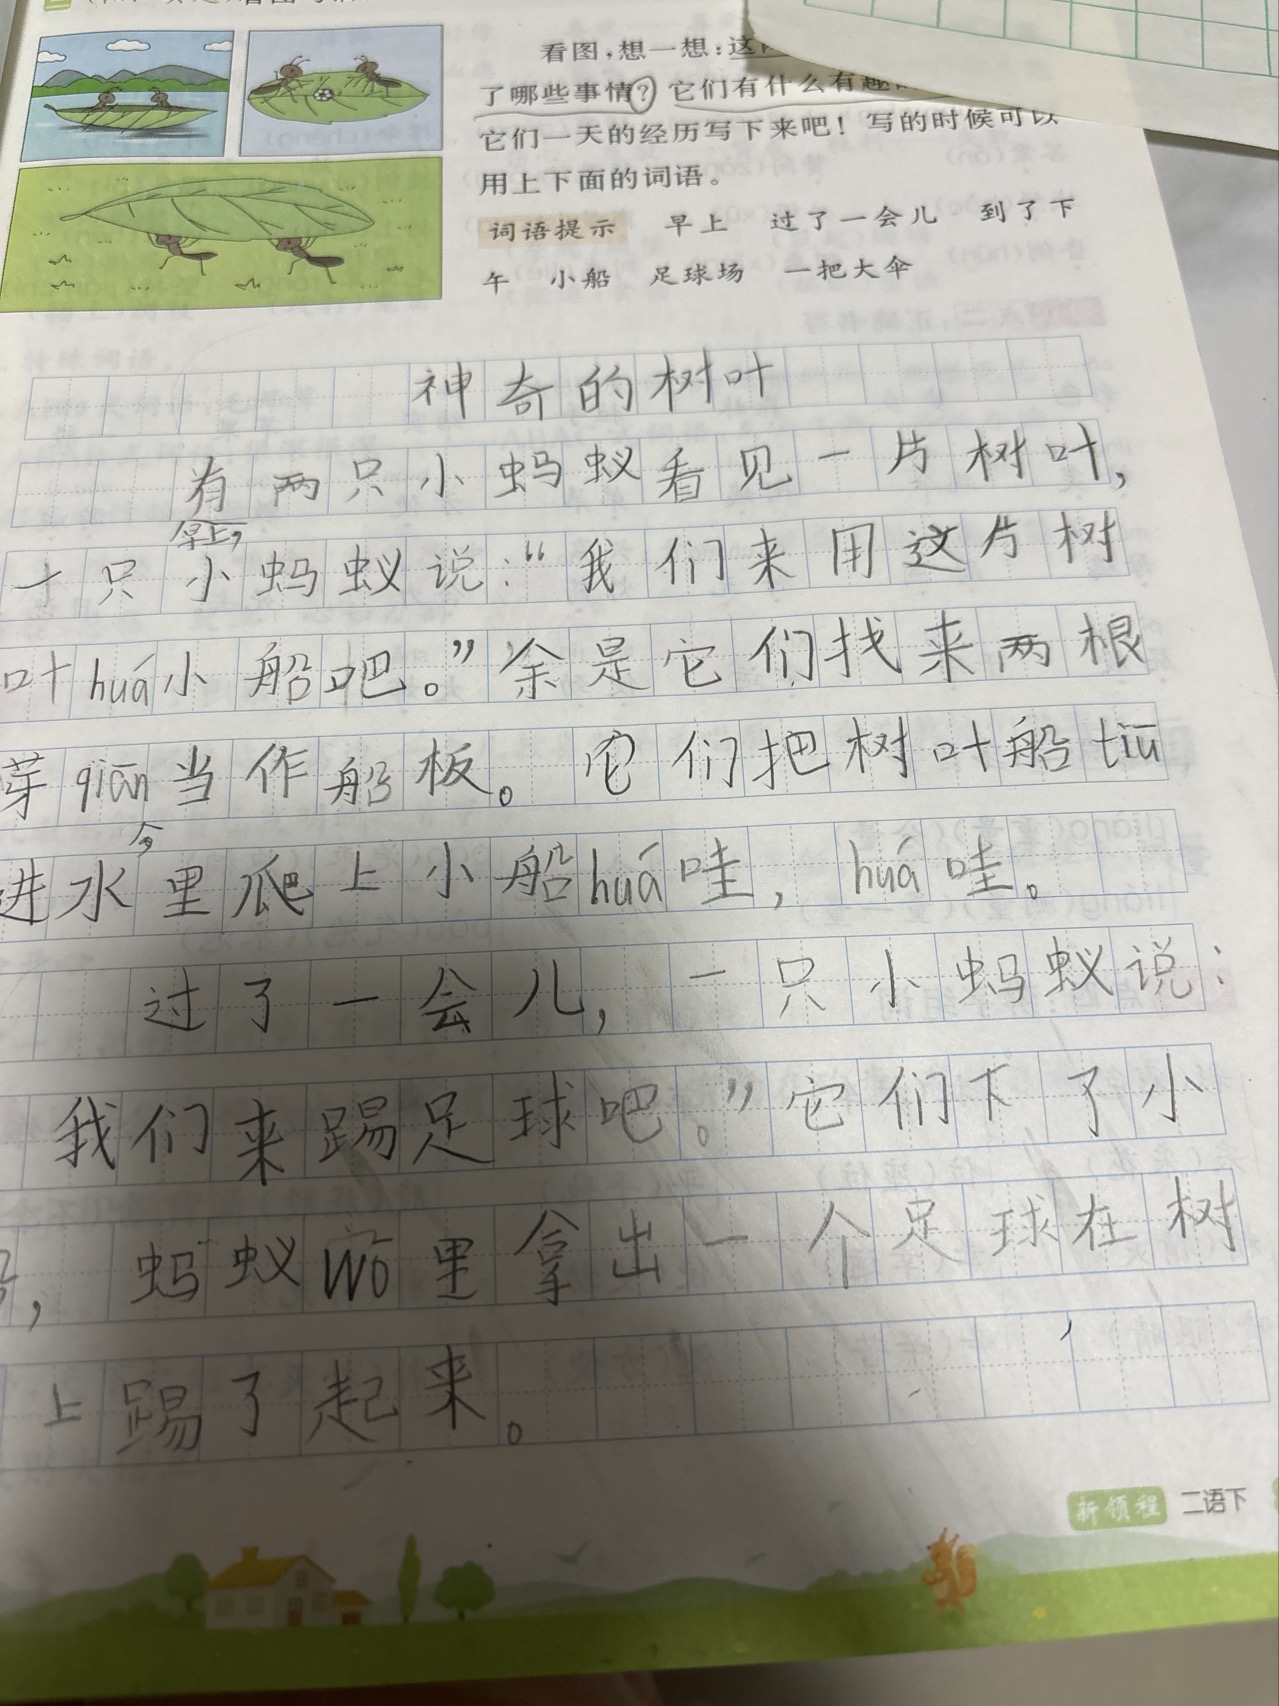 看图,想一想:这
了哪些事情?它们有什么有趣
它们一天的经历写下来吧!写的时候可以
用上下面的词语。
词语提示 早上 过了一会儿 到了下
午 小船 足球场 一把大伞
神奇的树叶
有两只小蚂蚁看见一片树叶,
早上,
一只小蚂蚁说:“我们来用这片树
叶huá小船吧。”余是它们找来两根
芽qiān当作船板。它们把树叶船tiū
今
进水里爬上小船huá哇,huá哇。
过了一会儿,一只小蚂蚁说:
我们来踢足球吧。”它们下了小
,蚂蚁wō里拿出一个足球在树
上踢了起来。
新领程 二语下